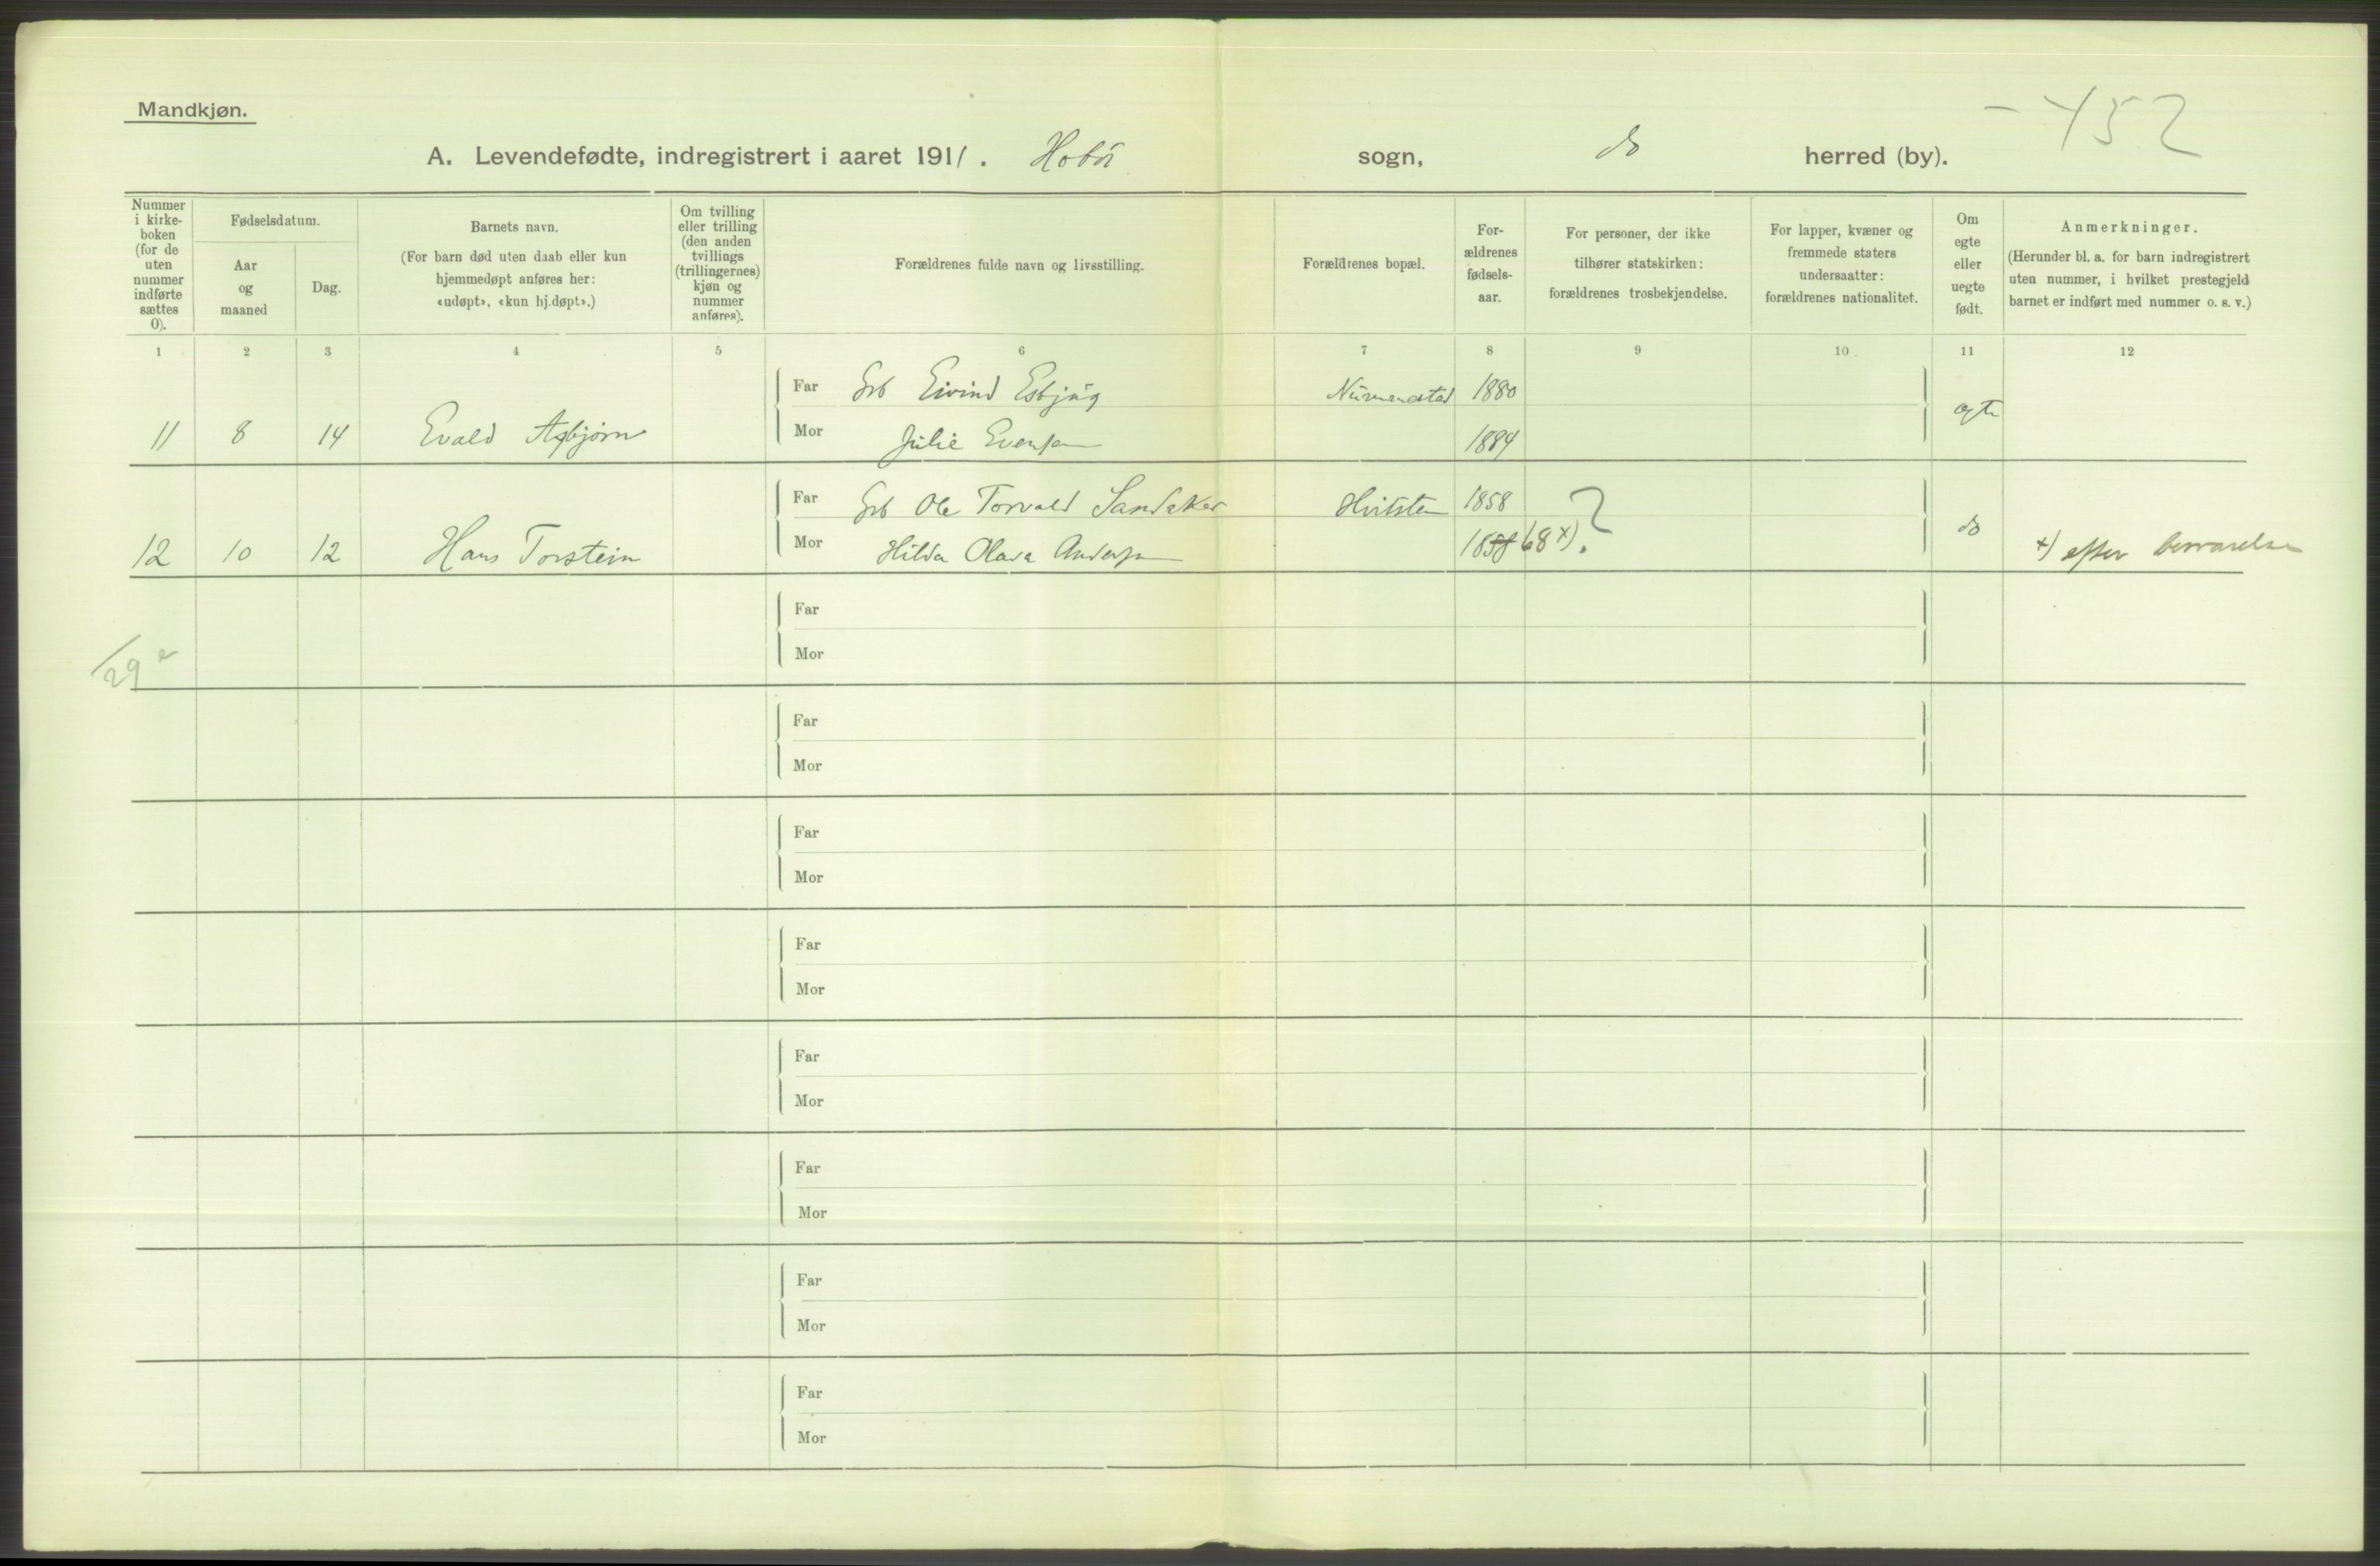 Mandkjøn.
- 452
A. Levendefødte, indregistrert i aaret 1911. Hobøl sogn, do herred (by).
Nummer
i kirke-
boken
(for de
uten
nummer
indførte
sættes
0).
Fødselsdatum.
Aar
og
maaned
Dag.
Barnets navn.
(For barn død uten daab eller kun
hjemmedøpt anføres her:
«udøpt», «kun hj.døpt».)
Om tvilling
eller trilling
(den anden
tvillings
(trillingernes)
kjøn og
nummer
anføres).
Forældrenes fulde navn og livsstilling.
Forældrenes bopæl.
For-
ældrenes
fødsels-
aar.
For personer, der ikke
tilhører statskirken:
forældrenes trosbekjendelse.
For lapper, kvæner og
fremmede staters
undersaatter:
forældrenes nationalitet.
Om
egte
eller
uegte
født.
Anmerkninger.
(Herunder bl. a. for barn indregistrert
uten nummer, i hvilket prestegjeld
barnet er indført med nummer o. s. v.)
1 2 3 4 5 6 7 8 9 10 11 12
Far Grb Eivind Esbjüg 1880
11 8 14 Evald Asbjørn egte
Mor Julie Evensen 1884
Far Grb Ole Torvald Sandaker Hvitsten 1858 ?
12 10 12 Hans Torstein do
Mor Hilda Olava Andersen 1858 68 x) x) efter besvarelse
Far
29
Mor
Far
Mor
Far
Mor
Far
Mor
Far
Mor
Far
Mor
Far
Mor
Far
Mor